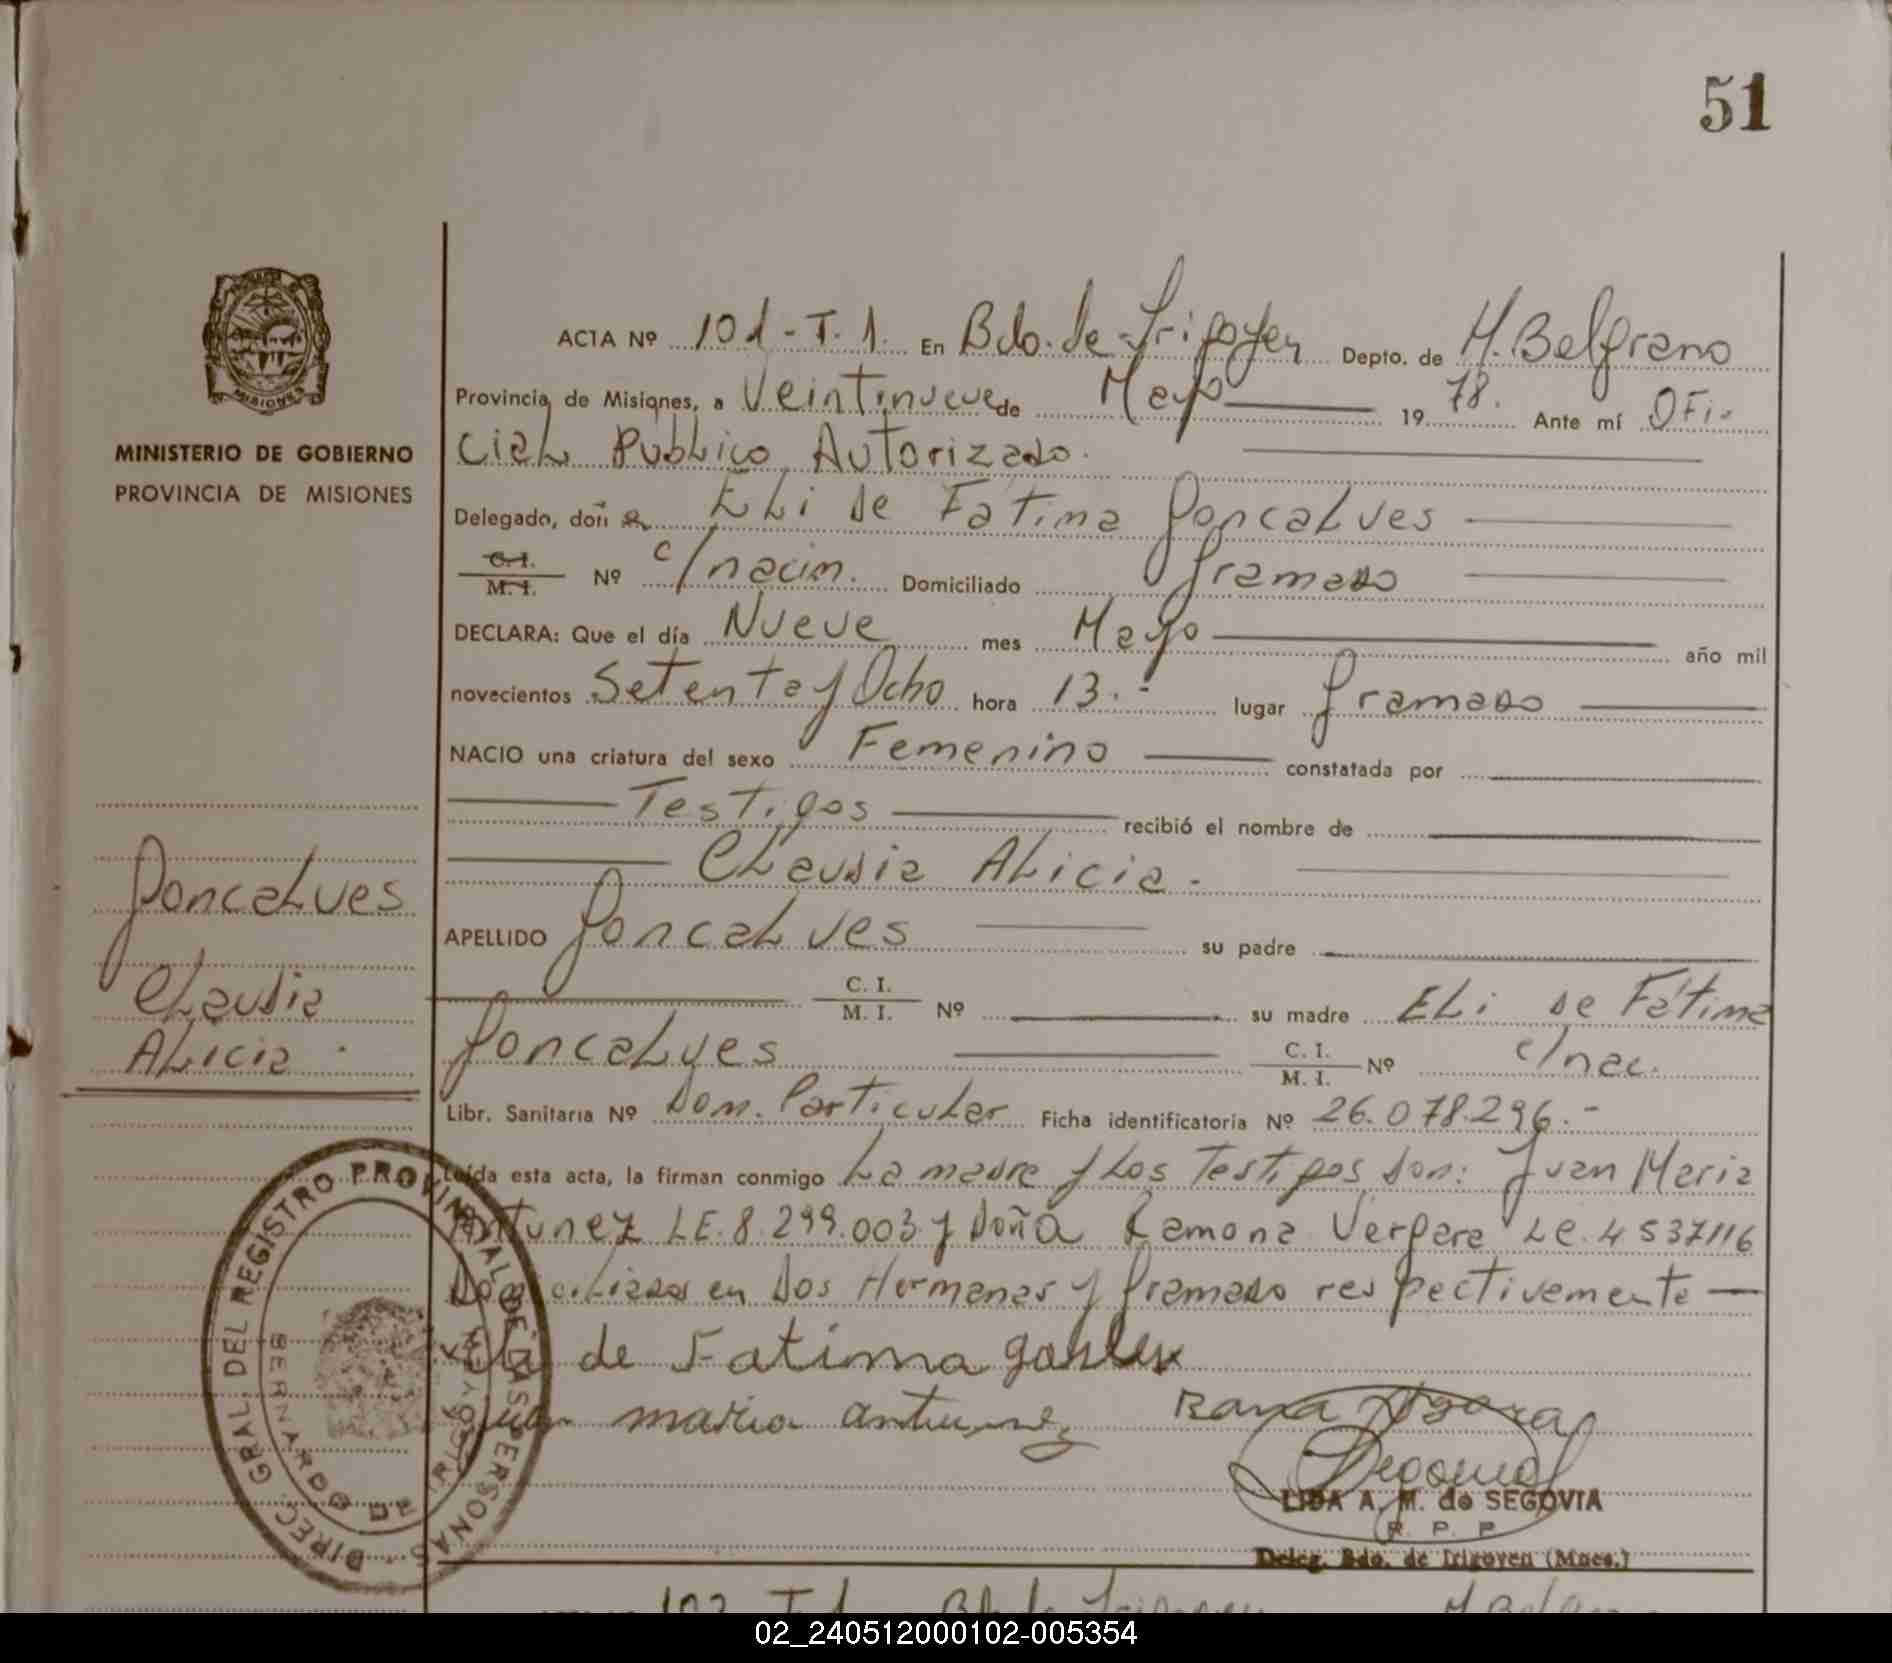 51
ACTA Nº 101-T.1. En Bdo. de Irigoyen Depto. de M. Belgrano
Provincia de Misiones, a Veintinueve de Mayo 1978. Ante mí OFi-
MINISTERIO DE GOBIERNO
PROVINCIA DE MISIONES
MISIONES
ciaL PúbLico Autorizado.
Delegado, doñ a ELi de Fatima GoncaLves
C.I. M.I. Nº c/nacim. Domiciliado Gramado
DECLARA: Que el día Nueve mes Mayo año mil
novecientos Setenta y Ocho hora 13.- lugar Gramado
NACIO una criatura del sexo Femenino constatada por
Testigos recibió el nombre de
CLaudia ALicia.-
GoncaLves
CLaudia
ALicia.
APELLIDO GoncaLves su padre
C. I. M. I. Nº su madre ELi de Fátima
GoncaLves C. I. M. I. Nº c/nac.
Libr. Sanitaria Nº Dom. Particular Ficha identificatoria Nº 26.078.296.-
Leída esta acta, la firman conmigo La madre y Los Testigos don: Juan Maria
Antunez LE.8.299.003 y Doña Ramona Vergara LC.4537116
Domiciliados en Dos Hermanas y Gramado respectivamente
de Fatima
Juan maria antunez
LIDA A. M. de SEGOVIA
R. P. P.
Deleg. Bdo. de Irigoyen (Mnes.)
DIREC. GRAL. DEL REGISTRO PROVINCIAL DE LAS PERSONAS
BERNARDO DE IRIGOYEN
102 T.1 Bdo. de Irigoyen M. Belgrano
02_240512000102-005354